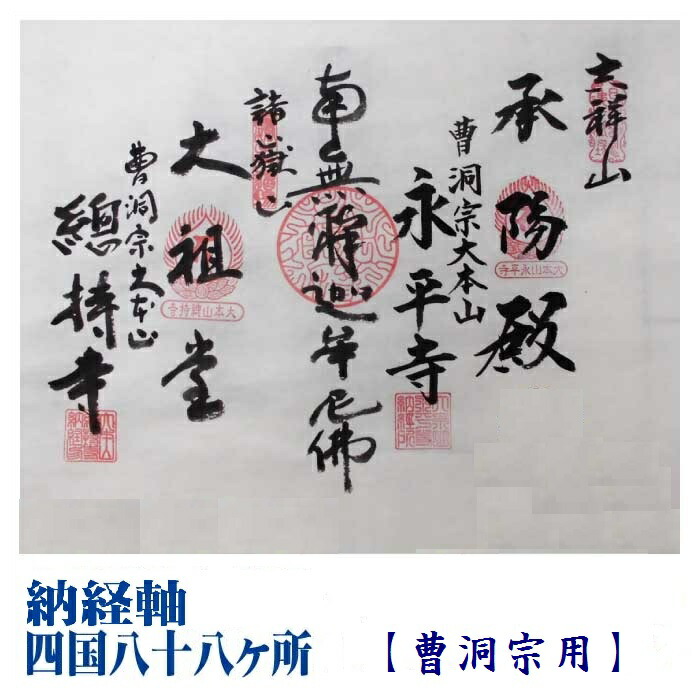 吉祥山
承陽殿
大本山永平寺
曹洞宗大本山
永平寺
南無釋迦牟尼佛
諸嶽山
大祖堂
大本山總持寺
曹洞宗大本山
總持寺
納経軸
四国八十八ヶ所
【曹洞宗用】